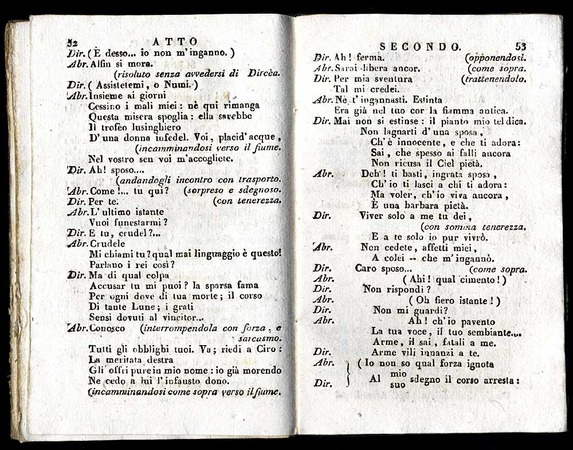 52
ATTO
Dir. (È desso... io non m'inganno.)
Abr. Alfin si mora.
(risoluto senza avvedersi di Dircèa.
Dir. (Assistetemi, o Numi.)
Abr. Insieme ai giorni
Cessino i mali miei: nè qui rimanga
Questa misera spoglia: ella sarebbe
Il trofeo lusinghiero
D'una donna infedel. Voi, placid'acque,
(incamminandosi verso il fiume.
Nel vostro sen voi m'accogliete.
Dir. Ah! sposo....
(andandogli incontro con trasporto.
Abr. Come!... tu qui? (sorpreso e sdegnoso.
Dir. Per te. (con tenerezza.
Abr. L'ultimo istante
Vuoi funestarmi?
Dir. E tu, crudel?...
Abr. Crudele
Mi chiami tu? qual mai linguaggio è questo!
Parlano i rei così?
Dir. Ma di qual colpa
Accusar tu mi puoi? la sparsa fama
Per ogni dove di tua morte; il corso
Di tante Lune; i grati
Sensi dovuti al vincitor...
Abr. Conosco (interrompendola con forza, e
sarcasmo.
Tutti gli obblighi tuoi. Va; riedi a Ciro:
La meritata destra
Gli offri pure in mio nome: io già morendo
Ne cedo a lui l'infausto dono.
(incamminandosi come sopra verso il fiume.
SECONDO.
53
Dir. Ah! ferma. (opponendosi.
Abr. Sarai libera ancor. (come sopra.
Dir. Per mia sventura (trattenendolo.
Tal mi credei.
Abr. Nè t'ingannasti. Estinta
Era già nel tuo cor la fiamma antica.
Dir. Mai non si estinse: il pianto mio tel dica.
Non lagnarti d'una sposa,
Ch'è innocente, e che ti adora:
Sai, che spesso ai falli ancora
Non ricusa il Ciel pietà.
Abr. Deh! ti basti, ingrata sposa,
Ch'io ti lasci a chi ti adora:
Ma voler, ch'io viva ancora,
È una barbara pietà.
Dir. Viver solo a me tu dei,
(con somma tenerezza.
E a te solo io pur vivrò.
Abr. Non cedete, affetti miei,
A colei -- che m'ingannò.
Dir. Caro sposo... (come sopra.
Abr. (Ahi! qual cimento!)
Dir. Non rispondi?
Abr. (Oh fiero istante!)
Dir. Non mi guardi?
Abr. Ah! ch'io pavento
La tua voce, il tuo sembiante....
Arme, il sai, fatali a me.
Dir. Arme vili innanzi a te.
Abr. (Io non so qual forza ignota
mio
Dir. Al suo sdegno il corso arresta: